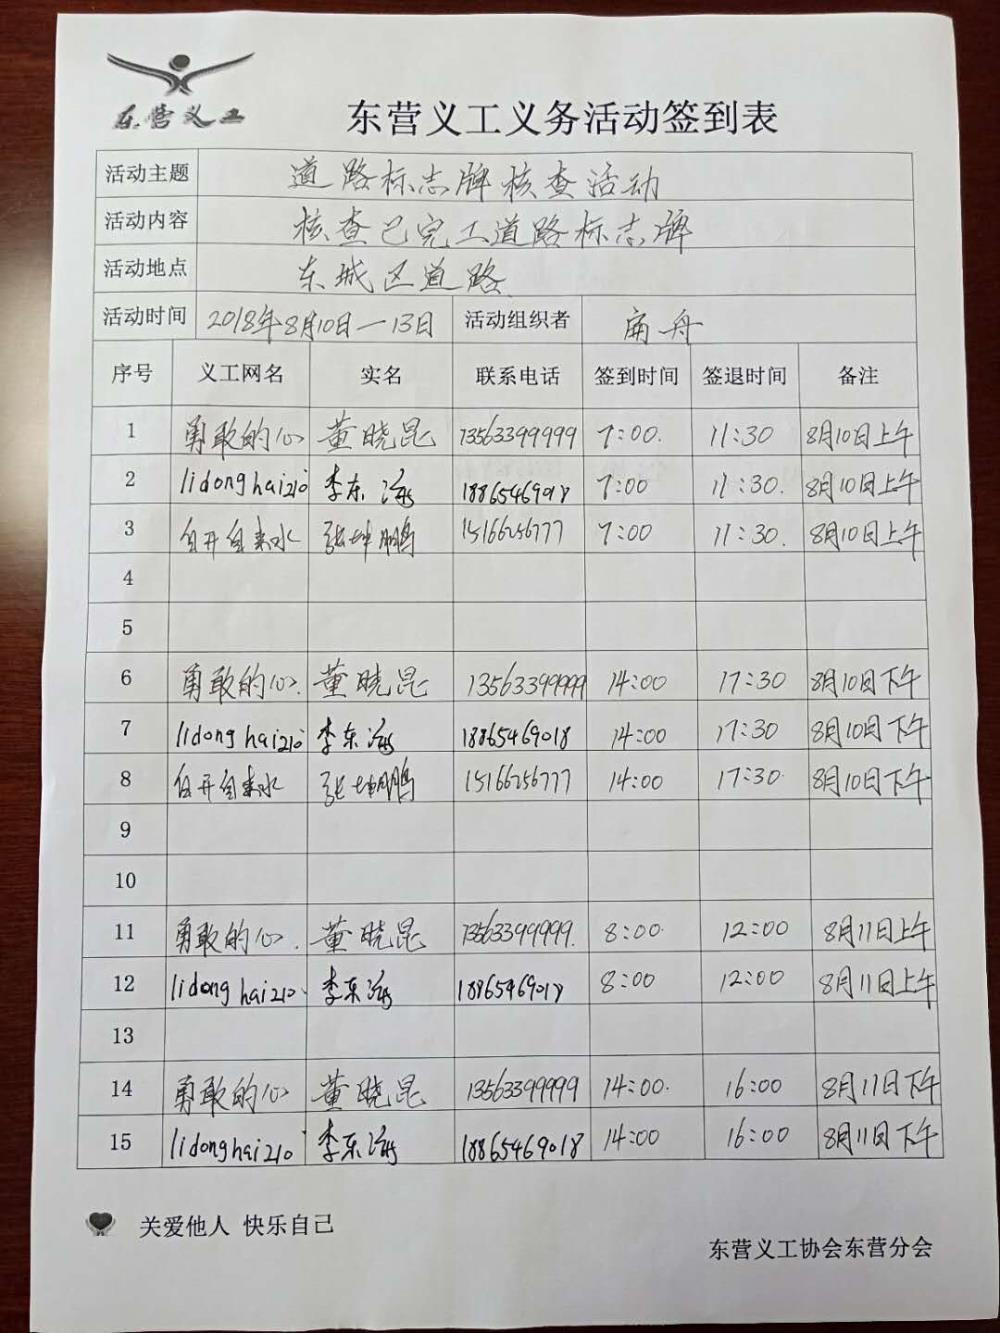 东营义工
东营义工义务活动签到表
活动主题 道路标志牌核查活动
活动内容 核查已完工道路标志牌
活动地点 东城区道路
活动时间 2018年8月10日—13日 活动组织者 舟
序号 义工网名 实名 联系电话 签到时间 签退时间 备注
1 勇敢的心 董晓昆 13563399999 7:00. 11:30 8月10日上午
2 lidonghai210 李东海 18865469018 7:00 11:30. 8月10日上午
3 自开自来水 张坤鹏 15166256777 7:00 11:30. 8月10日上午
4
5
6 勇敢的心. 董晓昆 13563399999 14:00 17:30 8月10日下午
7 lidonghai210 李东海 18865469018 14:00 17:30 8月10日下午
8 自开自来水 张坤鹏 15166256777 14:00 17:30. 8月10日下午
9
10
11 勇敢的心. 董晓昆 13563399999. 8:00. 12:00 8月11日上午
12 lidonghai210. 李东海 18865469018 8:00 12:00 8月11日上午
13
14 勇敢的心 董晓昆 13563399999 14:00. 16:00 8月11日下午
15 lidonghai210 李东海 18865469018 14:00 16:00 8月11日下午
关爱他人 快乐自己
东营义工协会东营分会